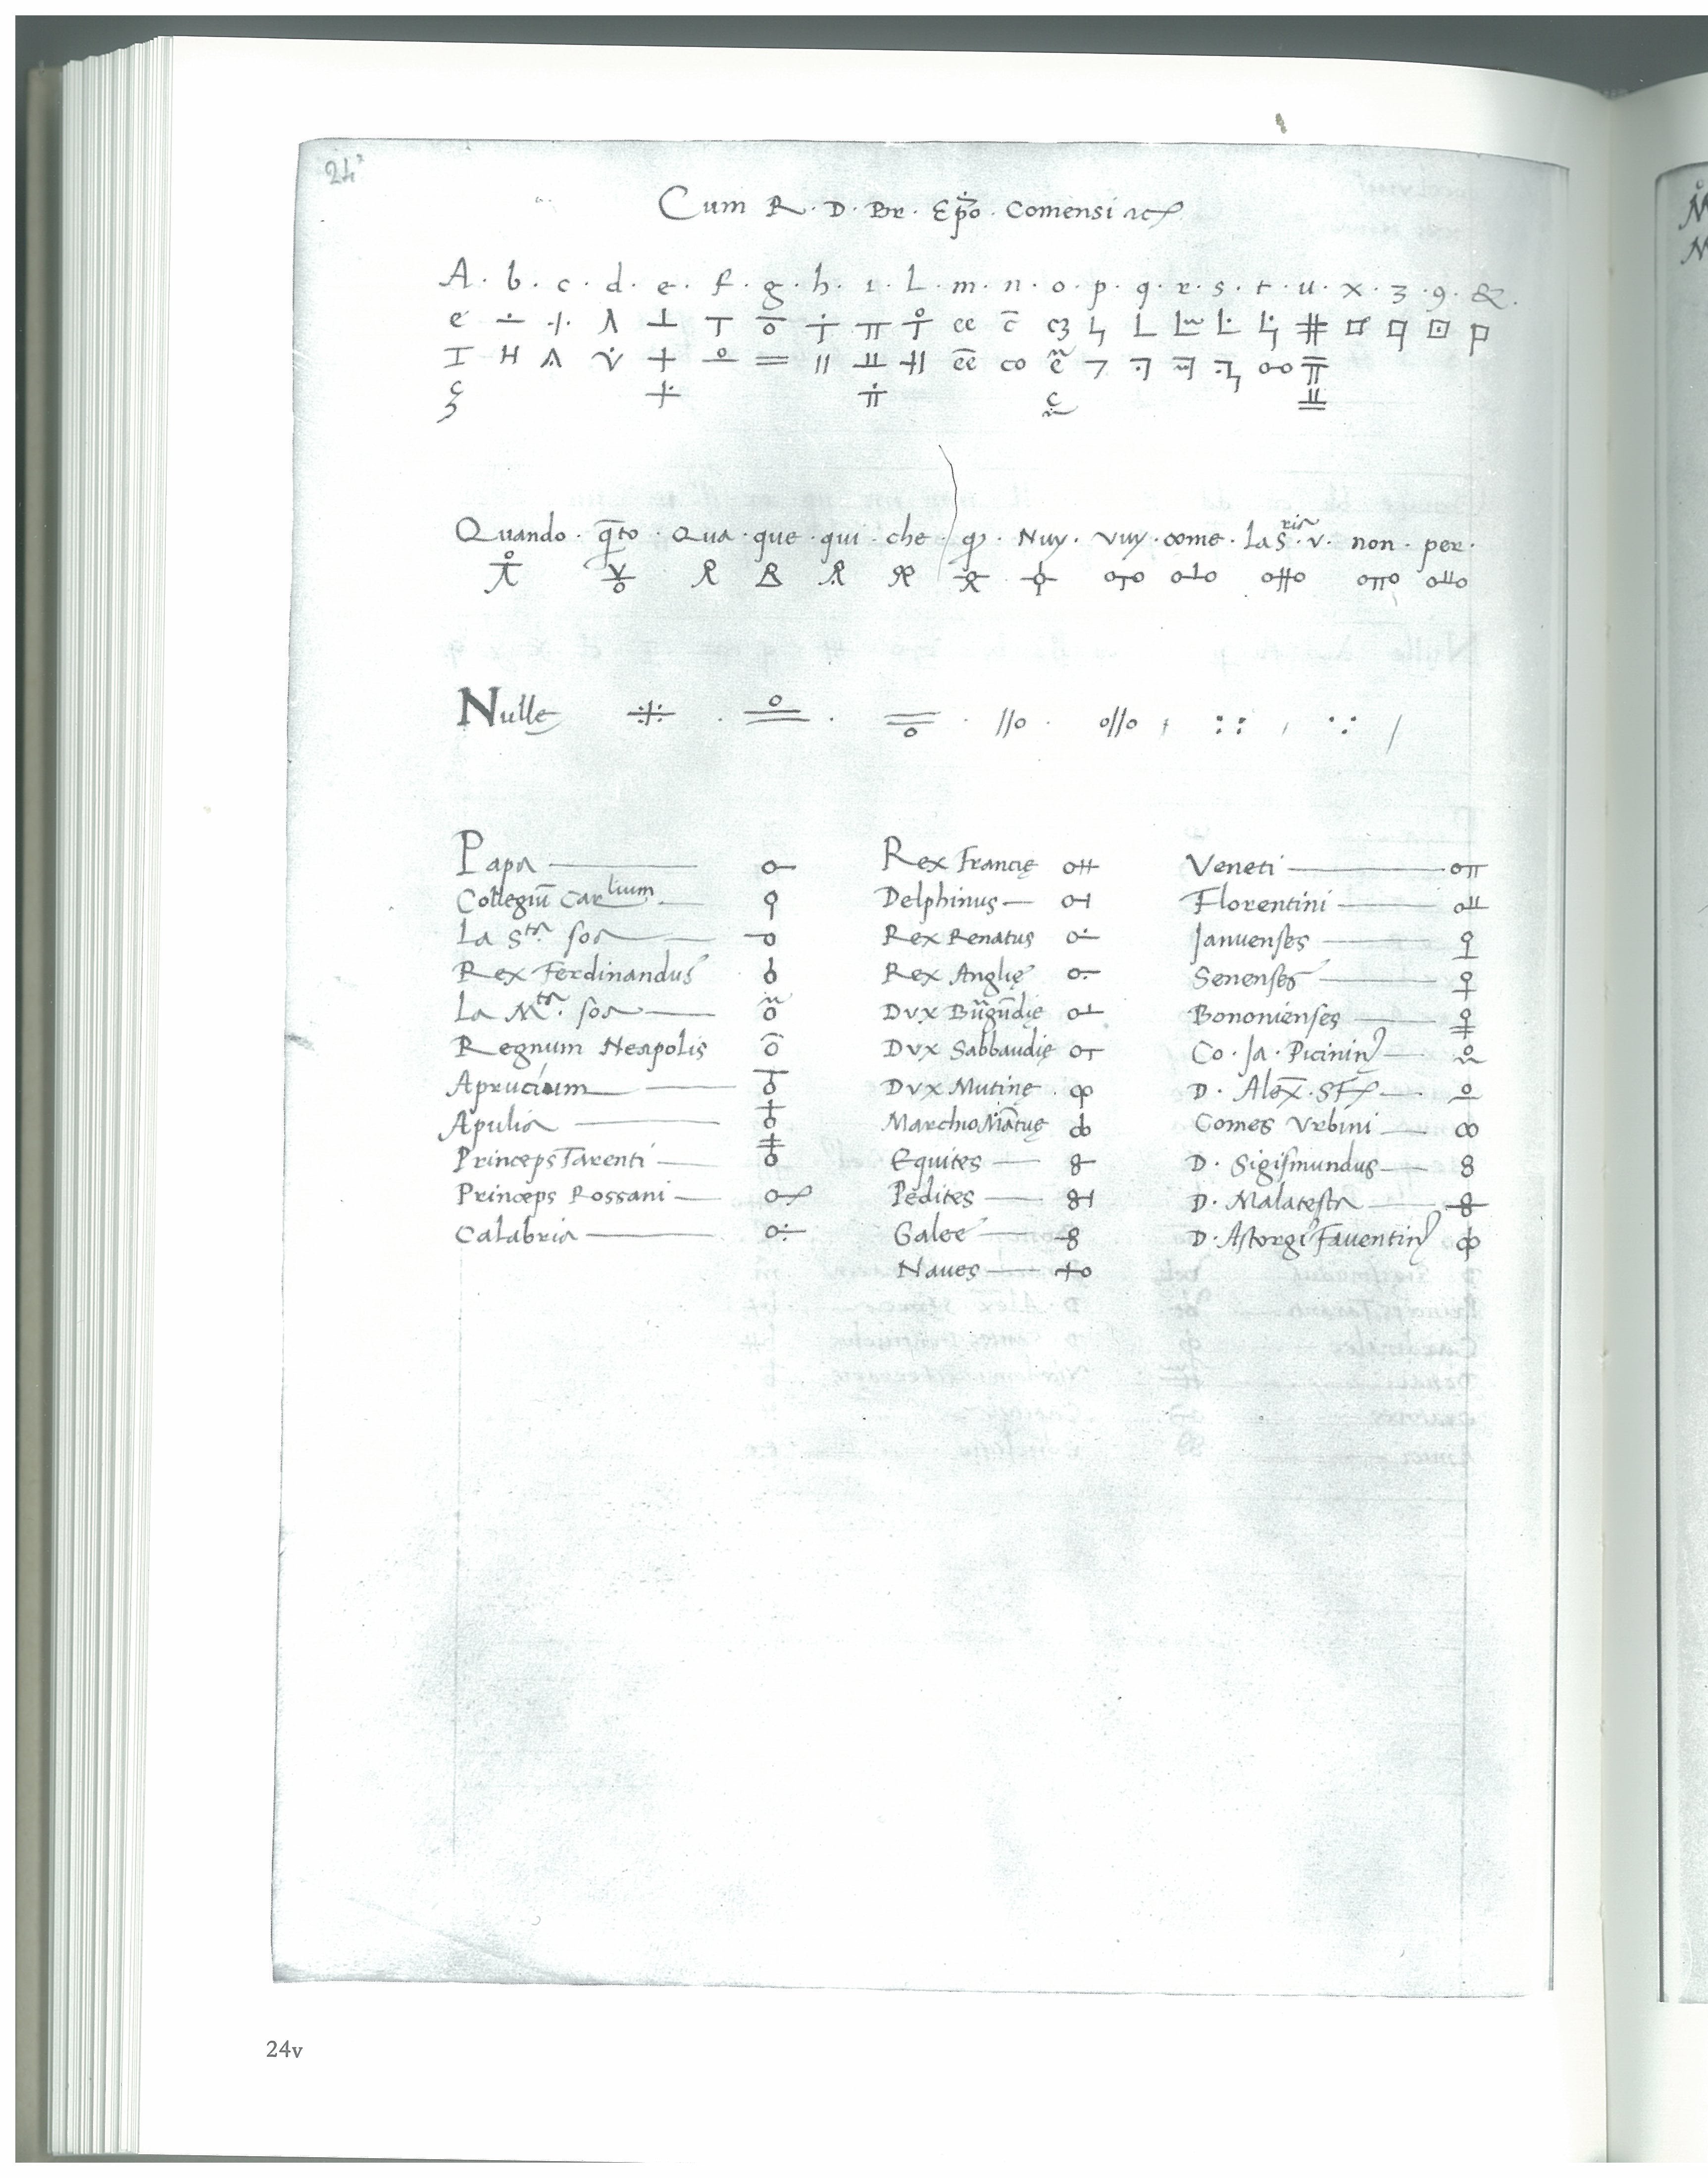 24
Cum R. D. Br. Ep̄o. Comensi
A. b. c. d. e. f. g. h. ı. L. m. n. o. p. q. r. s. t. u. x. ʒ. 9. &.
Quando. q̄to. Qua. que. qui. che. Nuy. vuy. come. La S.ria v. non. per.
Nulle
Papa
Collegiū Carlium
La S.ta soa
Rex Ferdinandus
La M.ta soa
Regnum Neapolis
Aprucium
Apulia
Princeps Tarenti
Princeps Rossani
Calabria
Rex Francię
Delphinus
Rex Renatus
Rex Anglię
Dvx Būgūdię
Dvx Sabbaudię
Dvx Mutinę
Marchio Mātuę
Equites
Pedites
Galee
Naues
Veneti
Florentini
Januenses
Senenses
Bononienses
Co. Ja. Picinin
D. Alex̄. SF
Comes Vrbini
D. Sigismundus
D. Malatesta
D. Astorgi Fauentin
24v